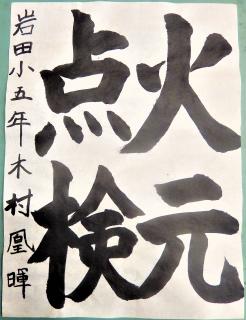 火元
点検
岩田小五年木村凰暉